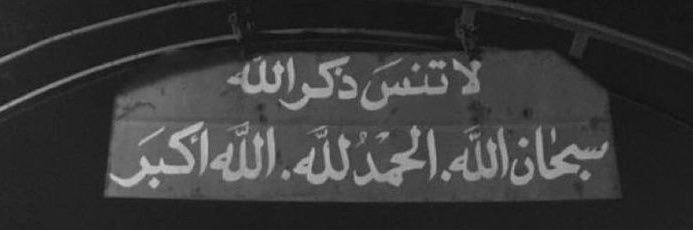 لا تنسَ ذكر الله
سبحان الله. الحمدُ للَّه. اللَّه اكبَر